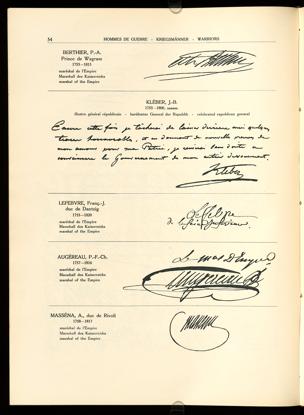 54
HOMMES DE GUERRE - KRIEGSMÄNNER - WARRIORS
BERTHIER, P.-A.
Prince de Wagram
1753 - 1815
maréchal de l'Empire
Marschall des Kaiserreichs
marshal of the Empire
KLÉBER, J.-B.
1753 - 1800
illustre général républicain - berühmter General der Republik - celebrated republican general
Encore cette fois je tâcherai de
et en donnant de nouvelle preuve de
mon amour pour ma Patrie, je
convaincre le Gouvernement de mon entier dévouement.
Kleber
LEFEBVRE, Franç.-J.
duc de Dantzig
1755 - 1820
maréchal de l'Empire
Marschall des Kaiserreichs
marshal of the Empire
AUGÉREAU, P.-F.-Ch.
1757 - 1816
maréchal de l'Empire
Marschall des Kaiserreichs
marshal of the Empire
Augereau
MASSÉNA, A., duc de Rivoli
1758 - 1817
maréchal de l'Empire
Marschall des Kaiserreichs
marshal of the Empire